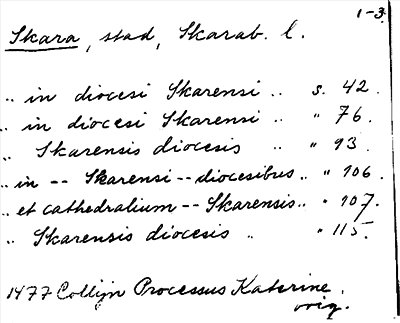 1-3.
Skara, stad, Skarab. l.
„ in diocesi Skarensi „ s. 42.
„ in diocesi Skarensi „ „ 76.
„ Skarensis diocesis „ „ 93.
„ in -- Skarensi -- diocesibus „ „ 106.
„ et cathedralium -- Skarensis „ „ 107.
„ Skarensis diocesis „ „ 115.
1477 Collijn Processus Katerine.
orig.